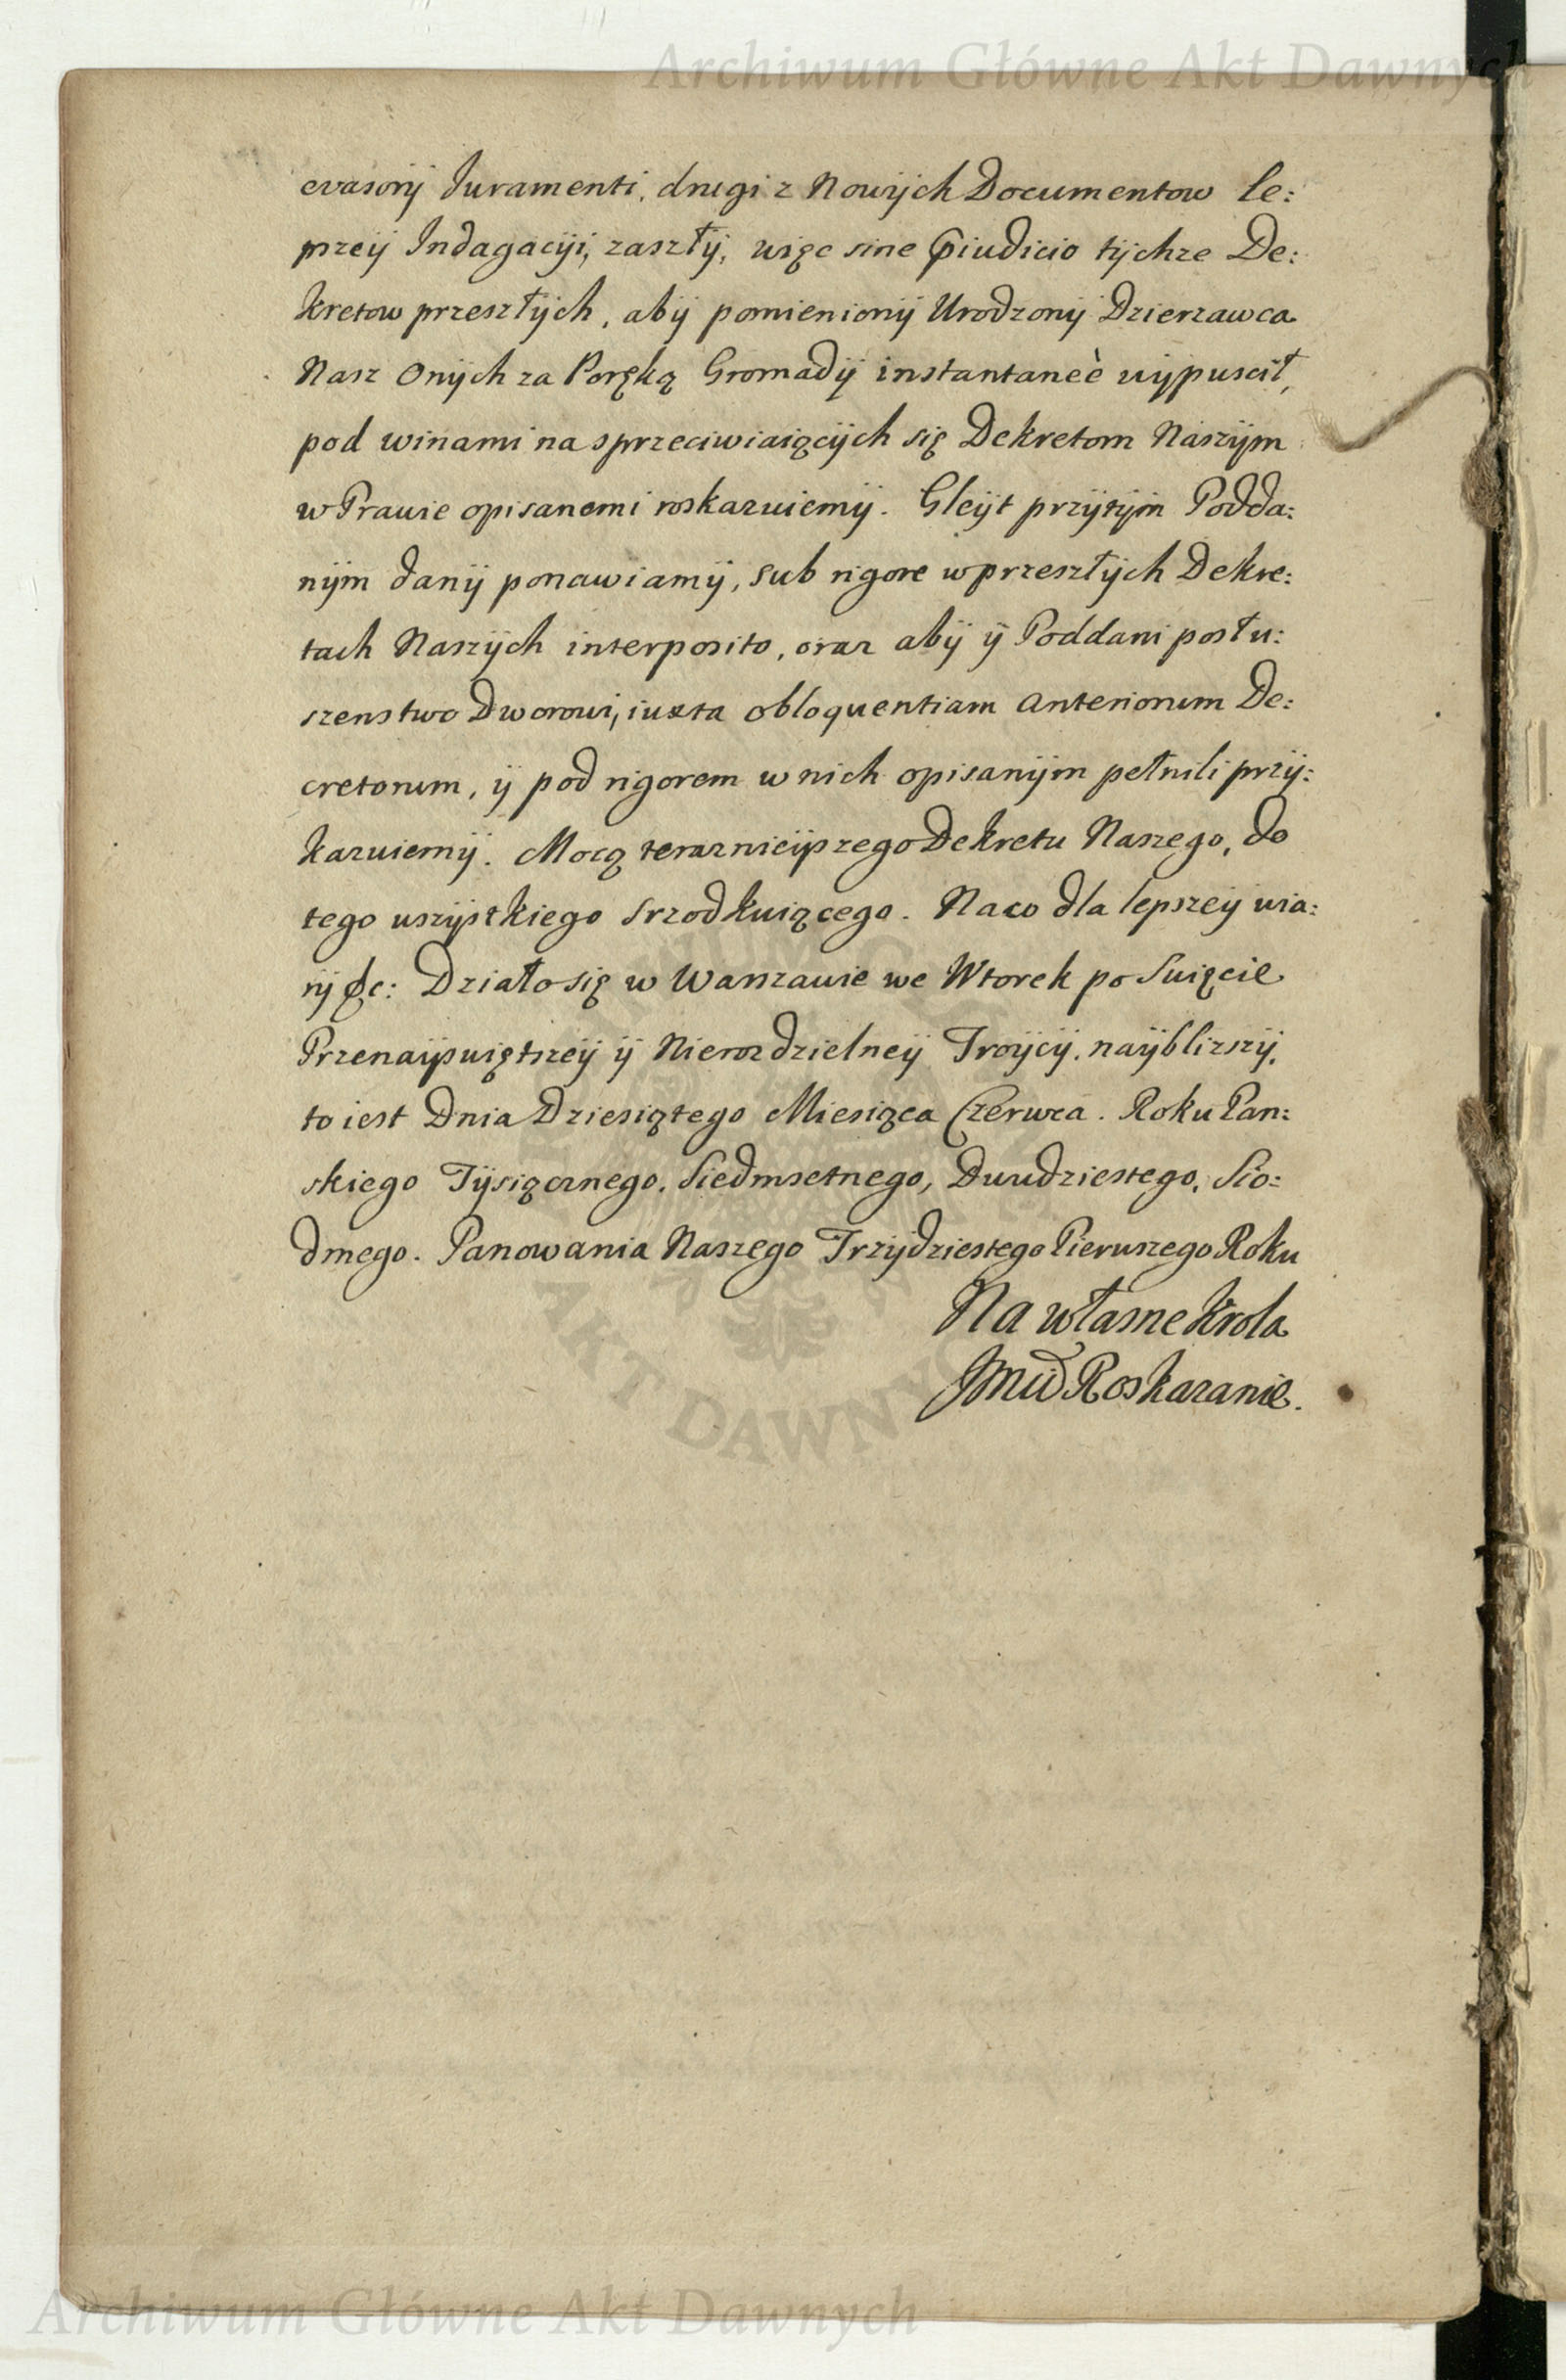 Archiwum Główne Akt Dawnych
evasorij Juramenti, drugi z Nowijch Documentow le:
pszeij Indagaciji, zaszłij, więc sine Pjiudicio tijchze De:
kretow przeszłijch, abij pomienionij Urodzonij Dzierzawca
Nasz Onijch za Poręką Gromadij instantaneè wijpuscił,
pod winami na sprzeciwiaiącijch się Dekretom Naszijm
w Prawie opisanemi roskazuiemij. Gleijt przijtijm Podda:
nijm danij ponawiamij, sub rigore w przeszłijch Dekre:
tach Naszijch interposito, oraz abij ij Poddani posłu:
szenstwo Dworowi, iuxta obloquentiam Anteriorum De:
cretorum, ij pod rigorem w nich opisanijm pełnili przij:
kazuiemij. Mocą teraznieijszego Dekretu Naszego, do
tego wszijstkiego srzodkuiącego. Na co dla lepszeij wia:
rij &c: Działo się w Warszawie we Wtorek po Swięcie
Przenaijswiętszeij ij Nierozdzielneij Troijcij, naijblizszij,
to iest Dnia Dziesiątego Miesiąca Czerwca. Roku Pan:
skiego Tijsiącznego, Siedmsetnego, Dwudziestego, Sio:
dmego. Panowania Naszego Trzijdziestego Pierwszego Roku
Na własne Krola
Jmci Roskazanie.
AKT DAWNYCH
Archiwum Główne Akt Dawnych